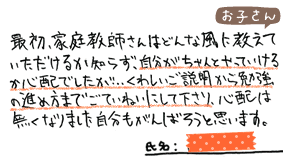 お子さん
最初、家庭教師さんはどんな風に教えて
いただけるか知らず、自分がちゃんとやっていける
か心配でしたが…くわしいご説明から勉強
の進め方までごていねいにして下さり、心配は
無くなりました自分もがんばろうと思います。
氏名: